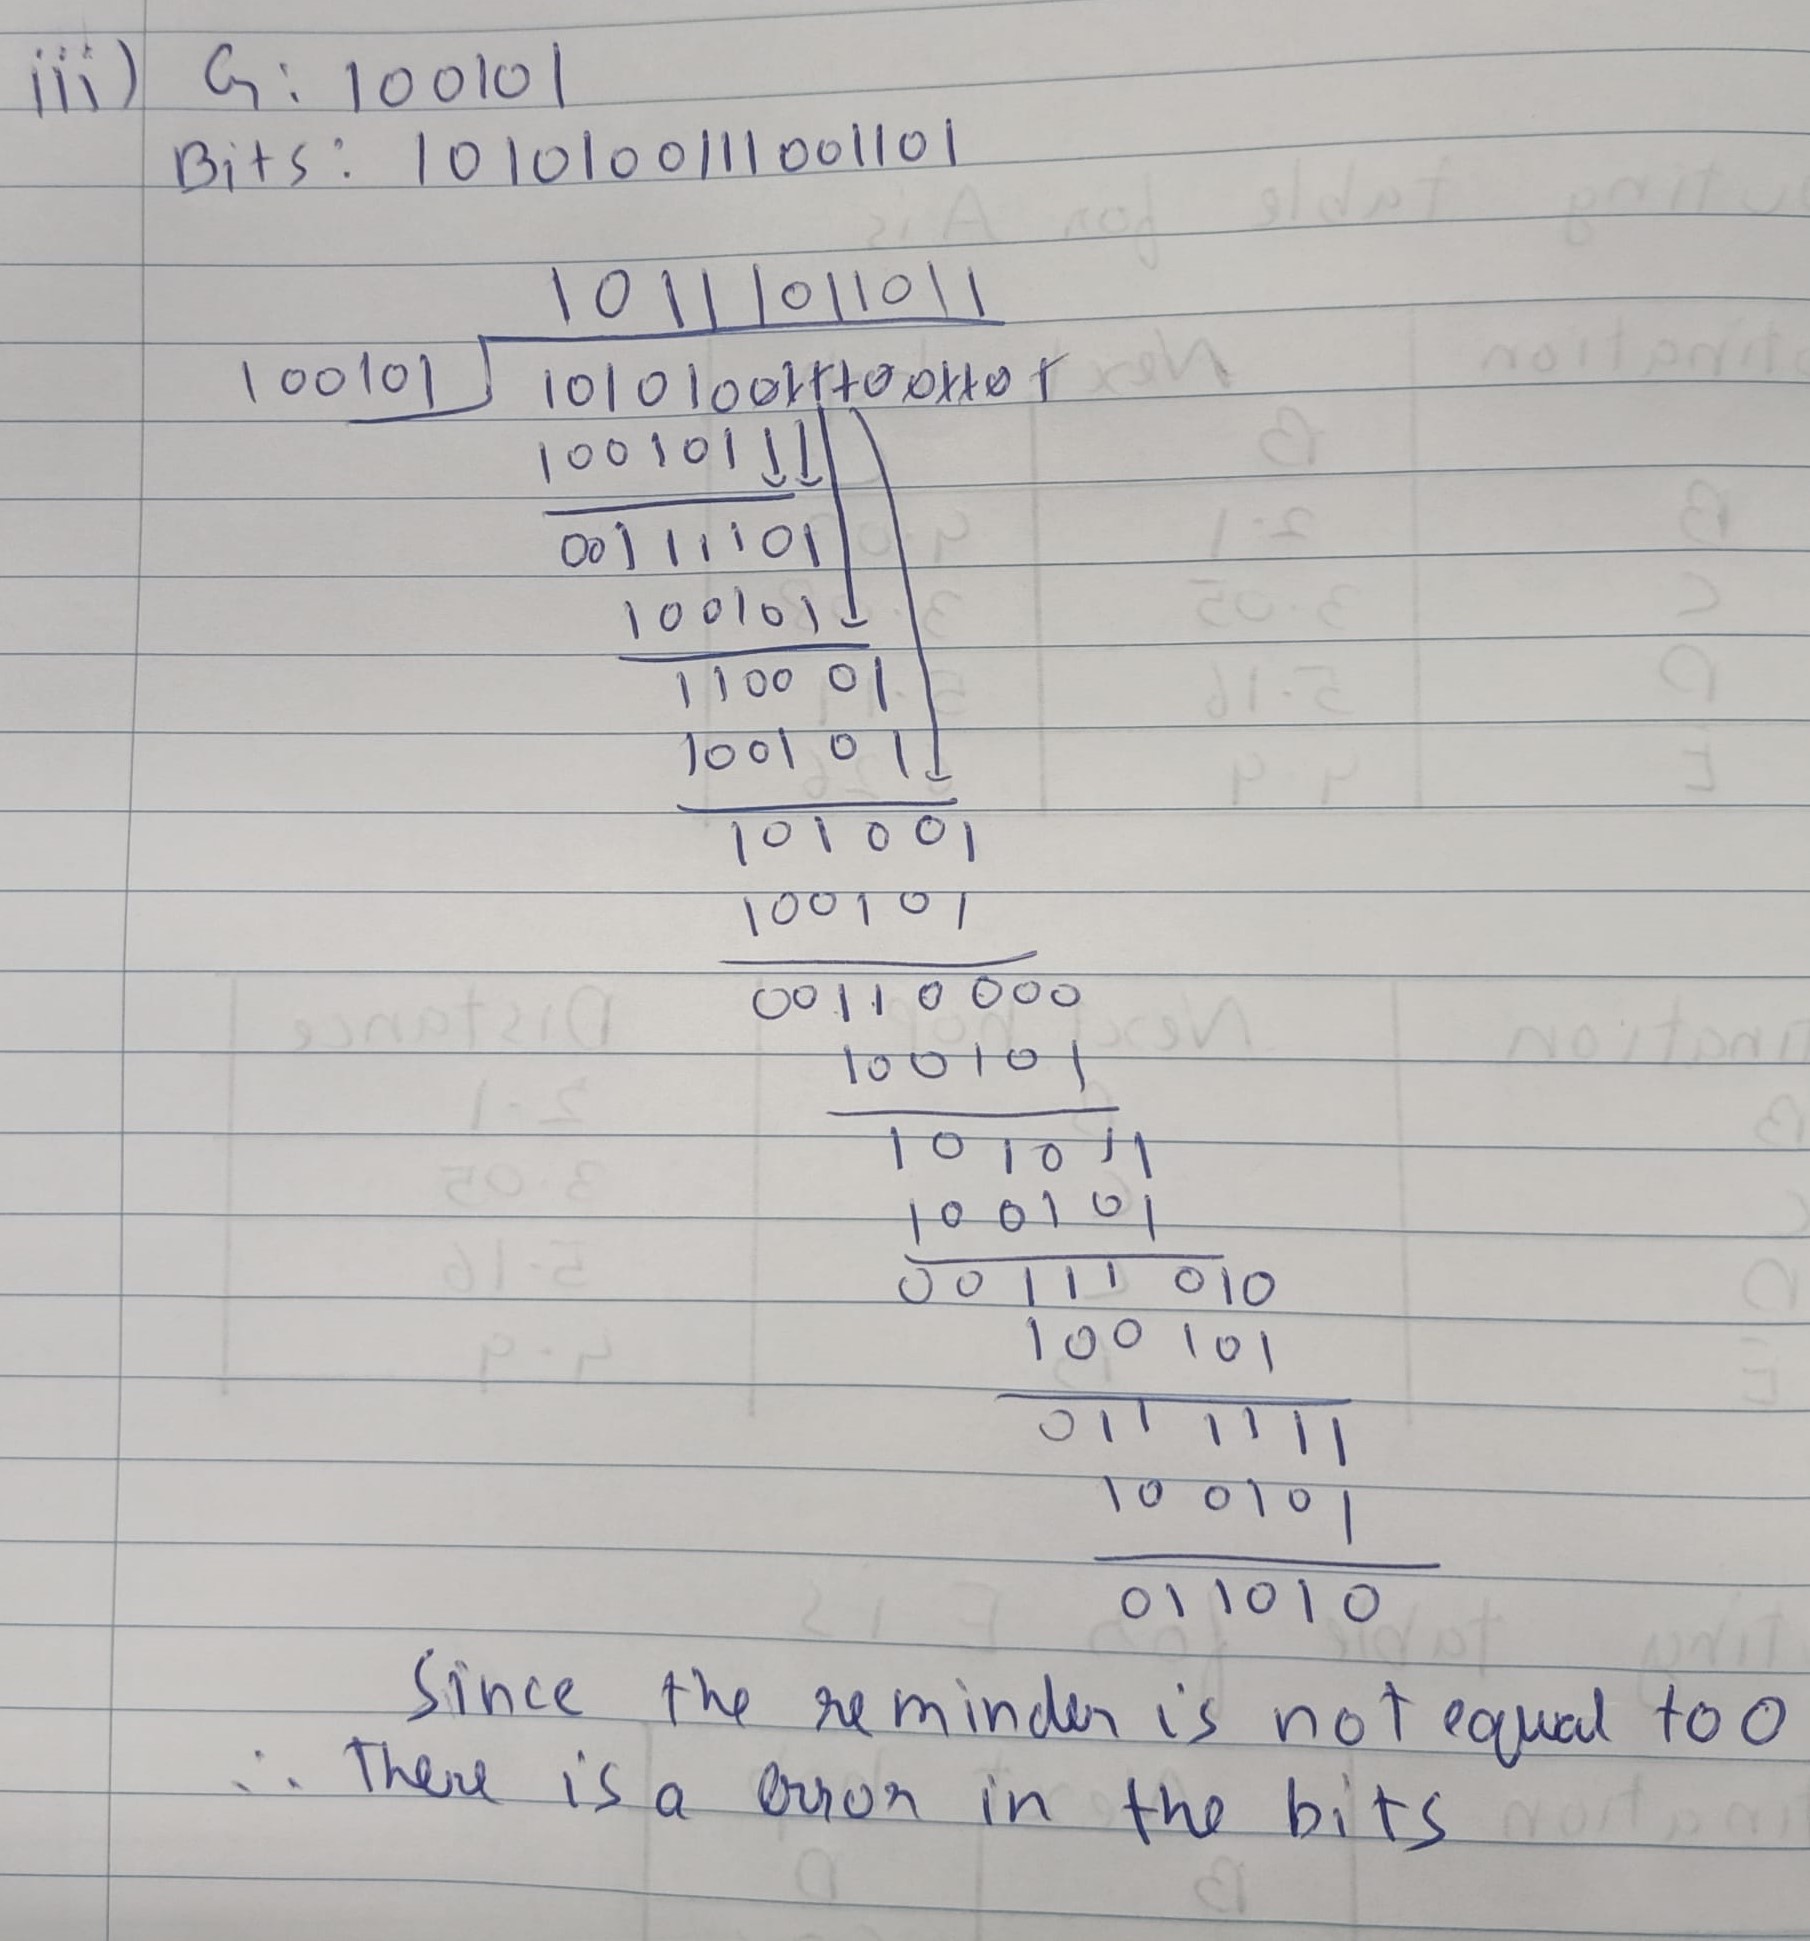 iii) G: 100101
Bits: 1010100111001101
10111011011
100101 1010100111001101
100101
00111101
100101
110001
100101
101001
100101
00110000
100101
101011
100101
00111010
100101
0111111
100101
011010
Since the reminder is not equal to 0
∴ There is a error in the bits